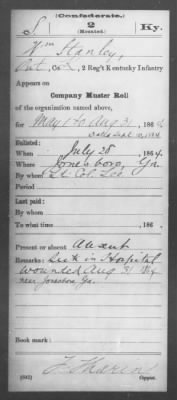 (Confederate.)
S 2 Ky.
(Mounted.)
Wm Stanley,
Pvt, Co. 2 Reg't Kentucky Infantry
Appears on
Company Muster Roll
of the organization named above,
for May 1 to Aug 31, 1864.
Dated Sept 12, 1864
Enlisted:
When July 28, 1864.
Where Jonesboro, Ga
By whom Lt. Col Lee
Period
Last paid:
By whom
To what time , 186 .
Present or absent Absent
Remarks: Sick in Hospital
wounded Aug 31 1864
near Jonesboro Ga.
Book mark:
(642) Copyist.